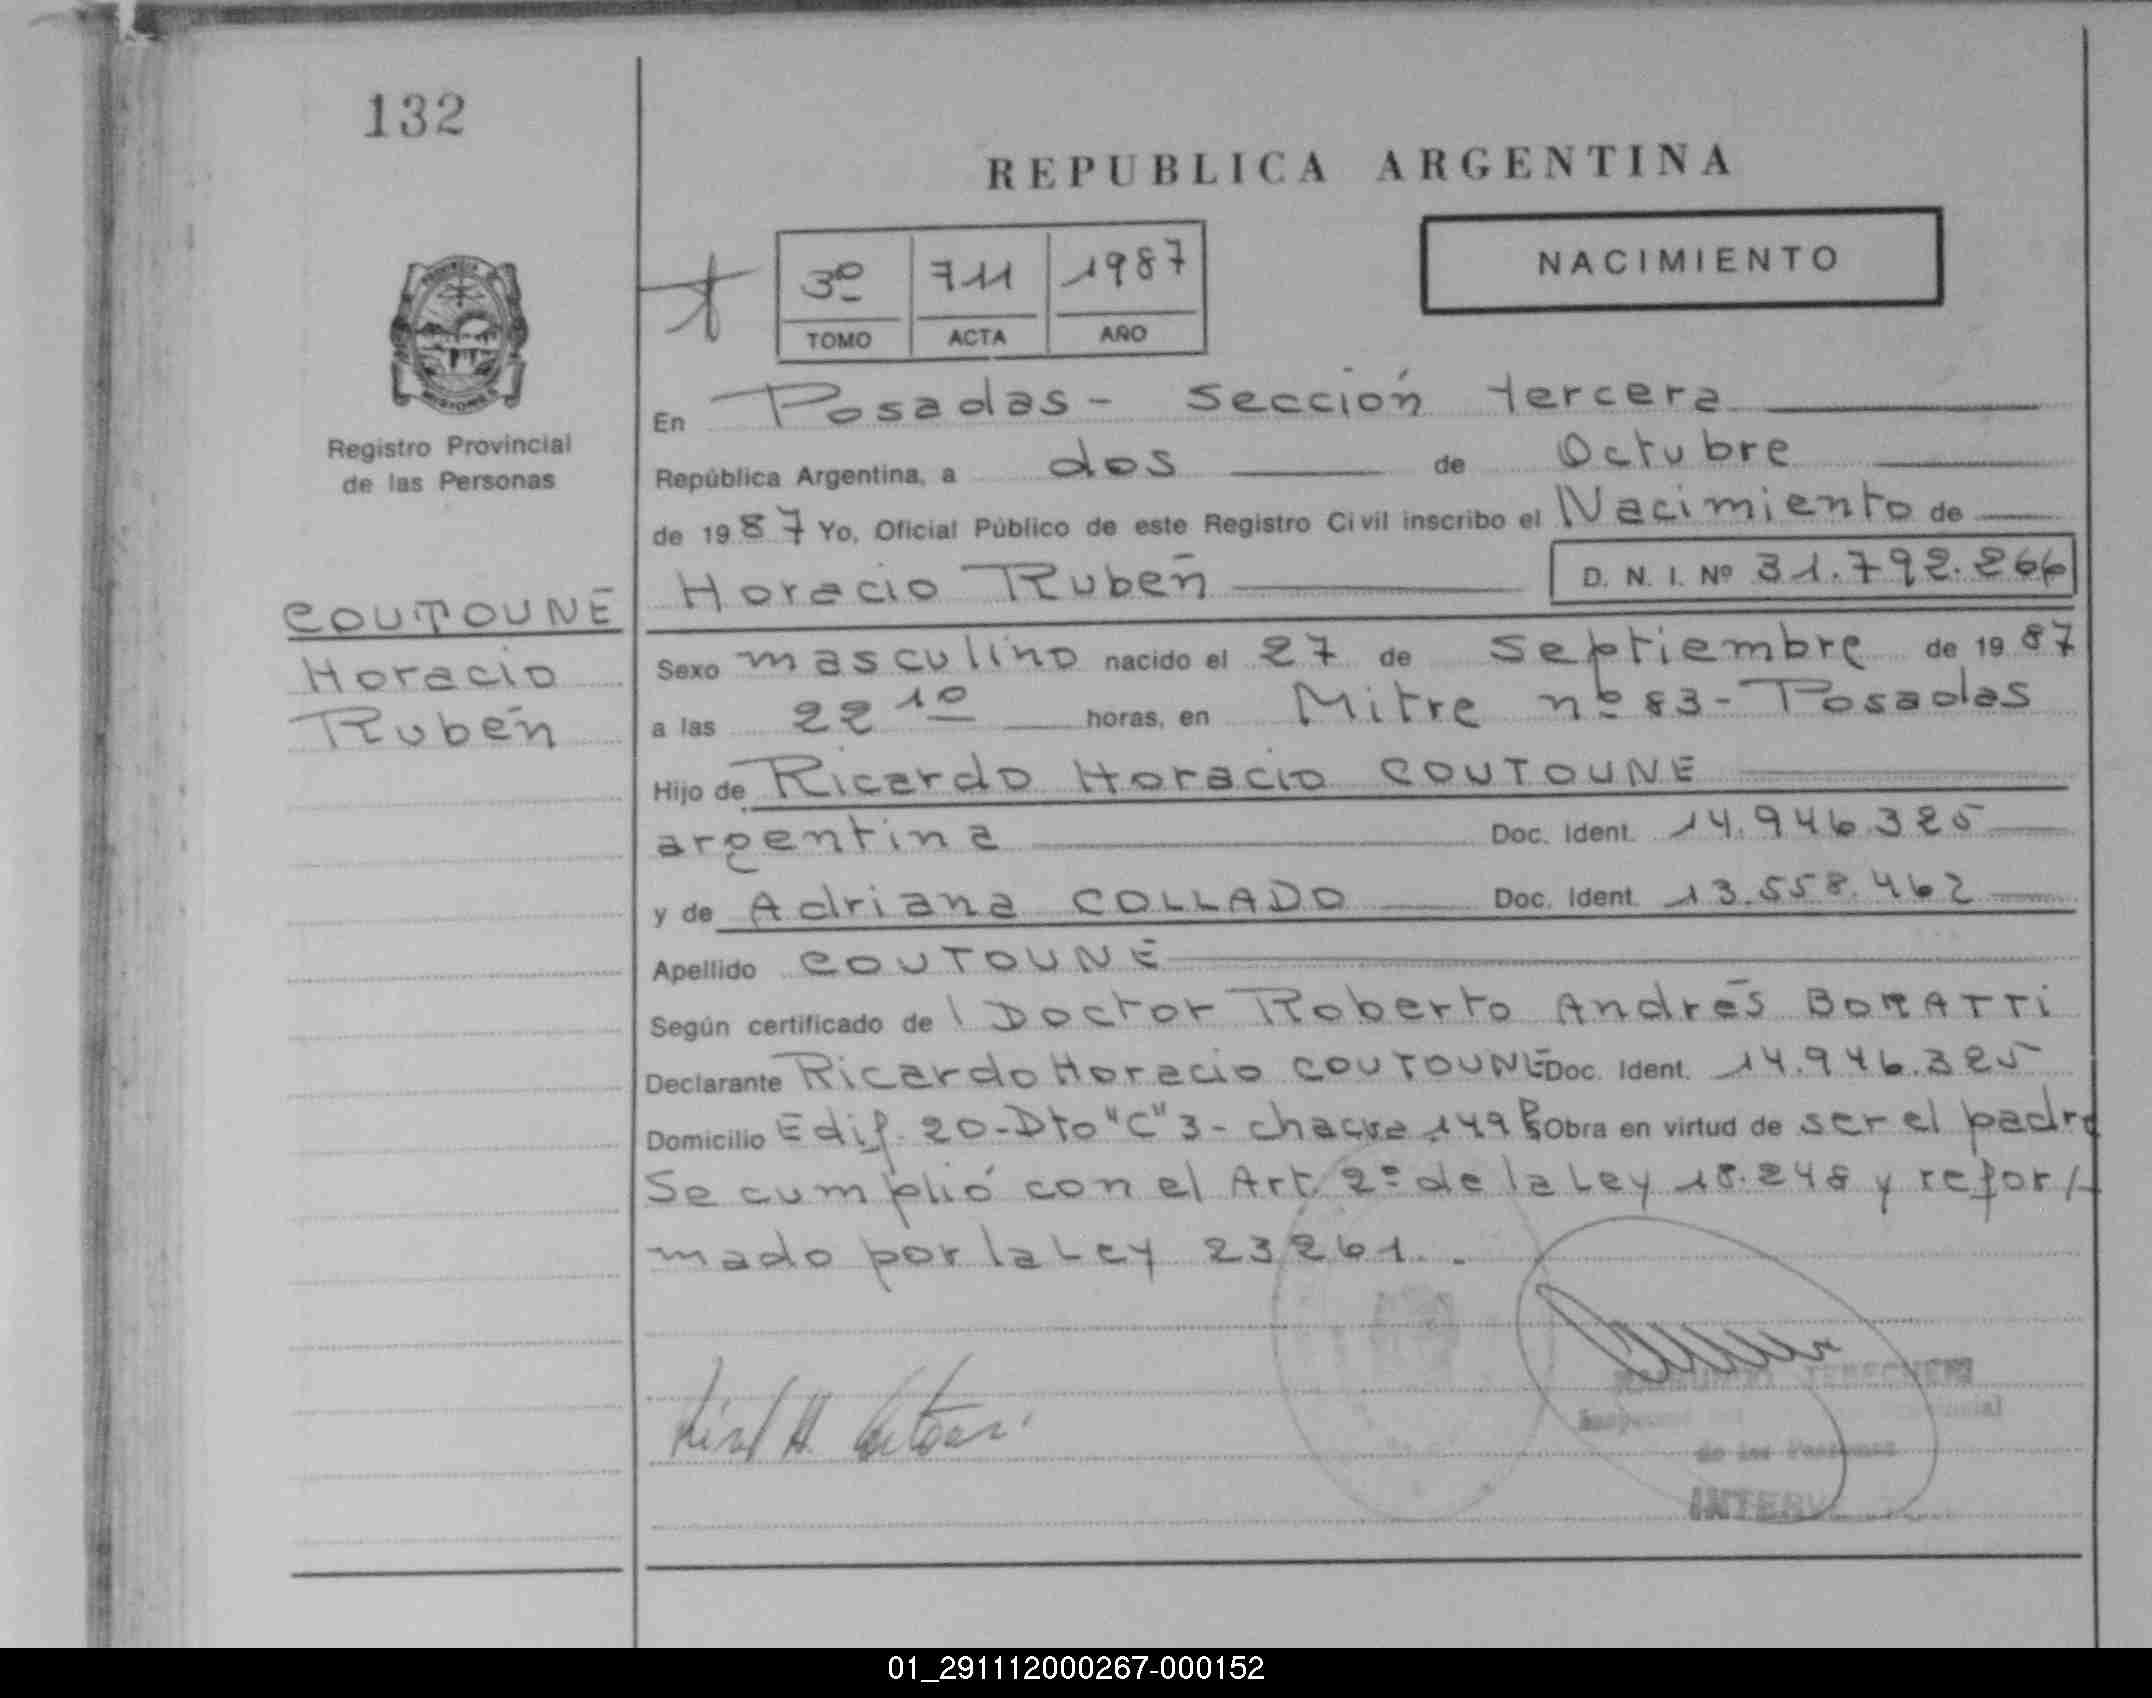 132
REPUBLICA ARGENTINA
NACIMIENTO
3º 711 1987
TOMO ACTA AÑO
Registro Provincial
de las Personas
COUTOUNÉ
Horacio
Rubén
En Posadas - sección tercera
República Argentina, a dos de Octubre
de 1987 Yo, Oficial Público de este Registro Civil inscribo el Nacimiento de
Horacio Rubén D. N. I. Nº 31.792.266
Sexo masculino nacido el 27 de Septiembre de 1987
a las 22 10 horas, en Mitre nº 83 - Posadas
Hijo de Ricardo Horacio COUTOUNE
argentina Doc. Ident. 14.946.325
y de Adriana COLLADO Doc. Ident. 13.558.462
Apellido COUTOUNÉ
Según certificado de l Doctor Roberto Andrés BORATTi
Declarante Ricardo Horacio COUTOUNÉ Doc. Ident. 14.946.325
Domicilio Edif. 20 - Dto "C" 3 - chacra 149 Obra en virtud de ser el padre
Se cumplió con el Art. 2º de la Ley 18.248 y refor//
mado por la Ley 23261.
de las Personas
01_291112000267-000152